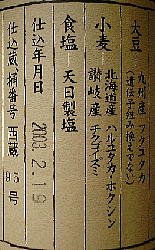 大豆　九州産フクユタカ
（遺伝子組み換えでない）
小麦　北海道産ハルユタカ・ホクシン
讃岐産チクゴイズミ
食塩　天日製塩
仕込年月日　2003.2.19
仕込蔵・桶番号　西蔵
号